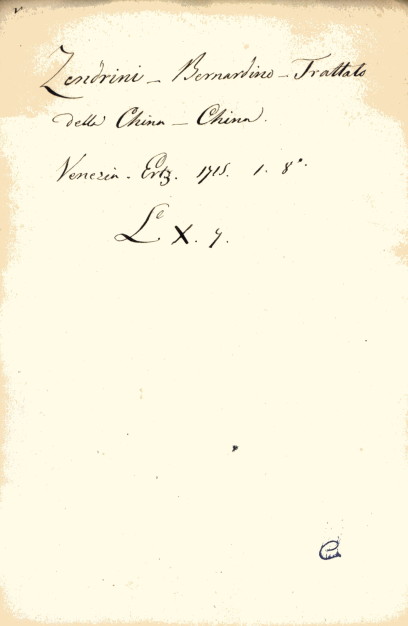 Zendrini – Bernardino – Trattato
della China – China.
Venezia – Ertz. 1715. 1. 8°.
L.e X. 7.